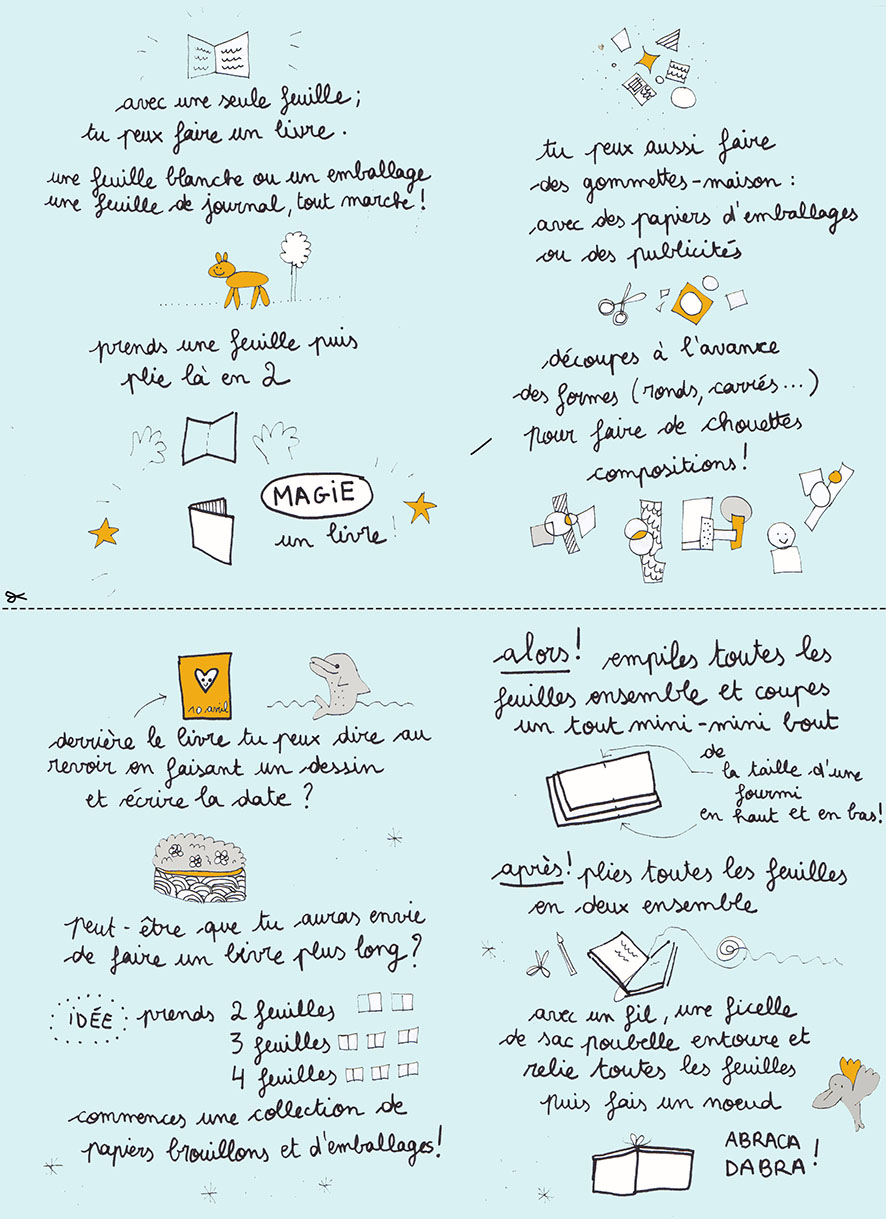 avec une seule feuille ;
tu peux faire un livre.
une feuille blanche ou un emballage
une feuille de journal, tout marche !
prends une feuille puis
plie là en 2
MAGiE
un livre !
tu peux aussi faire
des gommettes-maison :
avec des papiers d'emballages
ou des publicités
découpes à l'avance
des formes (ronds, carrés...)
pour faire de chouettes
compositions !
10 avril
derrière le livre tu peux dire au
revoir en faisant un dessin
et écrire la date ?
peut-être que tu auras envie
de faire un livre plus long ?
iDÉE prends 2 feuilles
3 feuilles
4 feuilles
commences une collection de
papiers brouillons et d'emballages !
alors ! empiles toutes les
feuilles ensemble et coupes
un tout mini-mini bout
de
la taille d'une
fourmi
en haut et en bas !
après ! plies toutes les feuilles
en deux ensemble
avec un fil, une ficelle
de sac poubelle entoure et
relie toutes les feuilles
puis fais un noeud
ABRACA
DABRA !